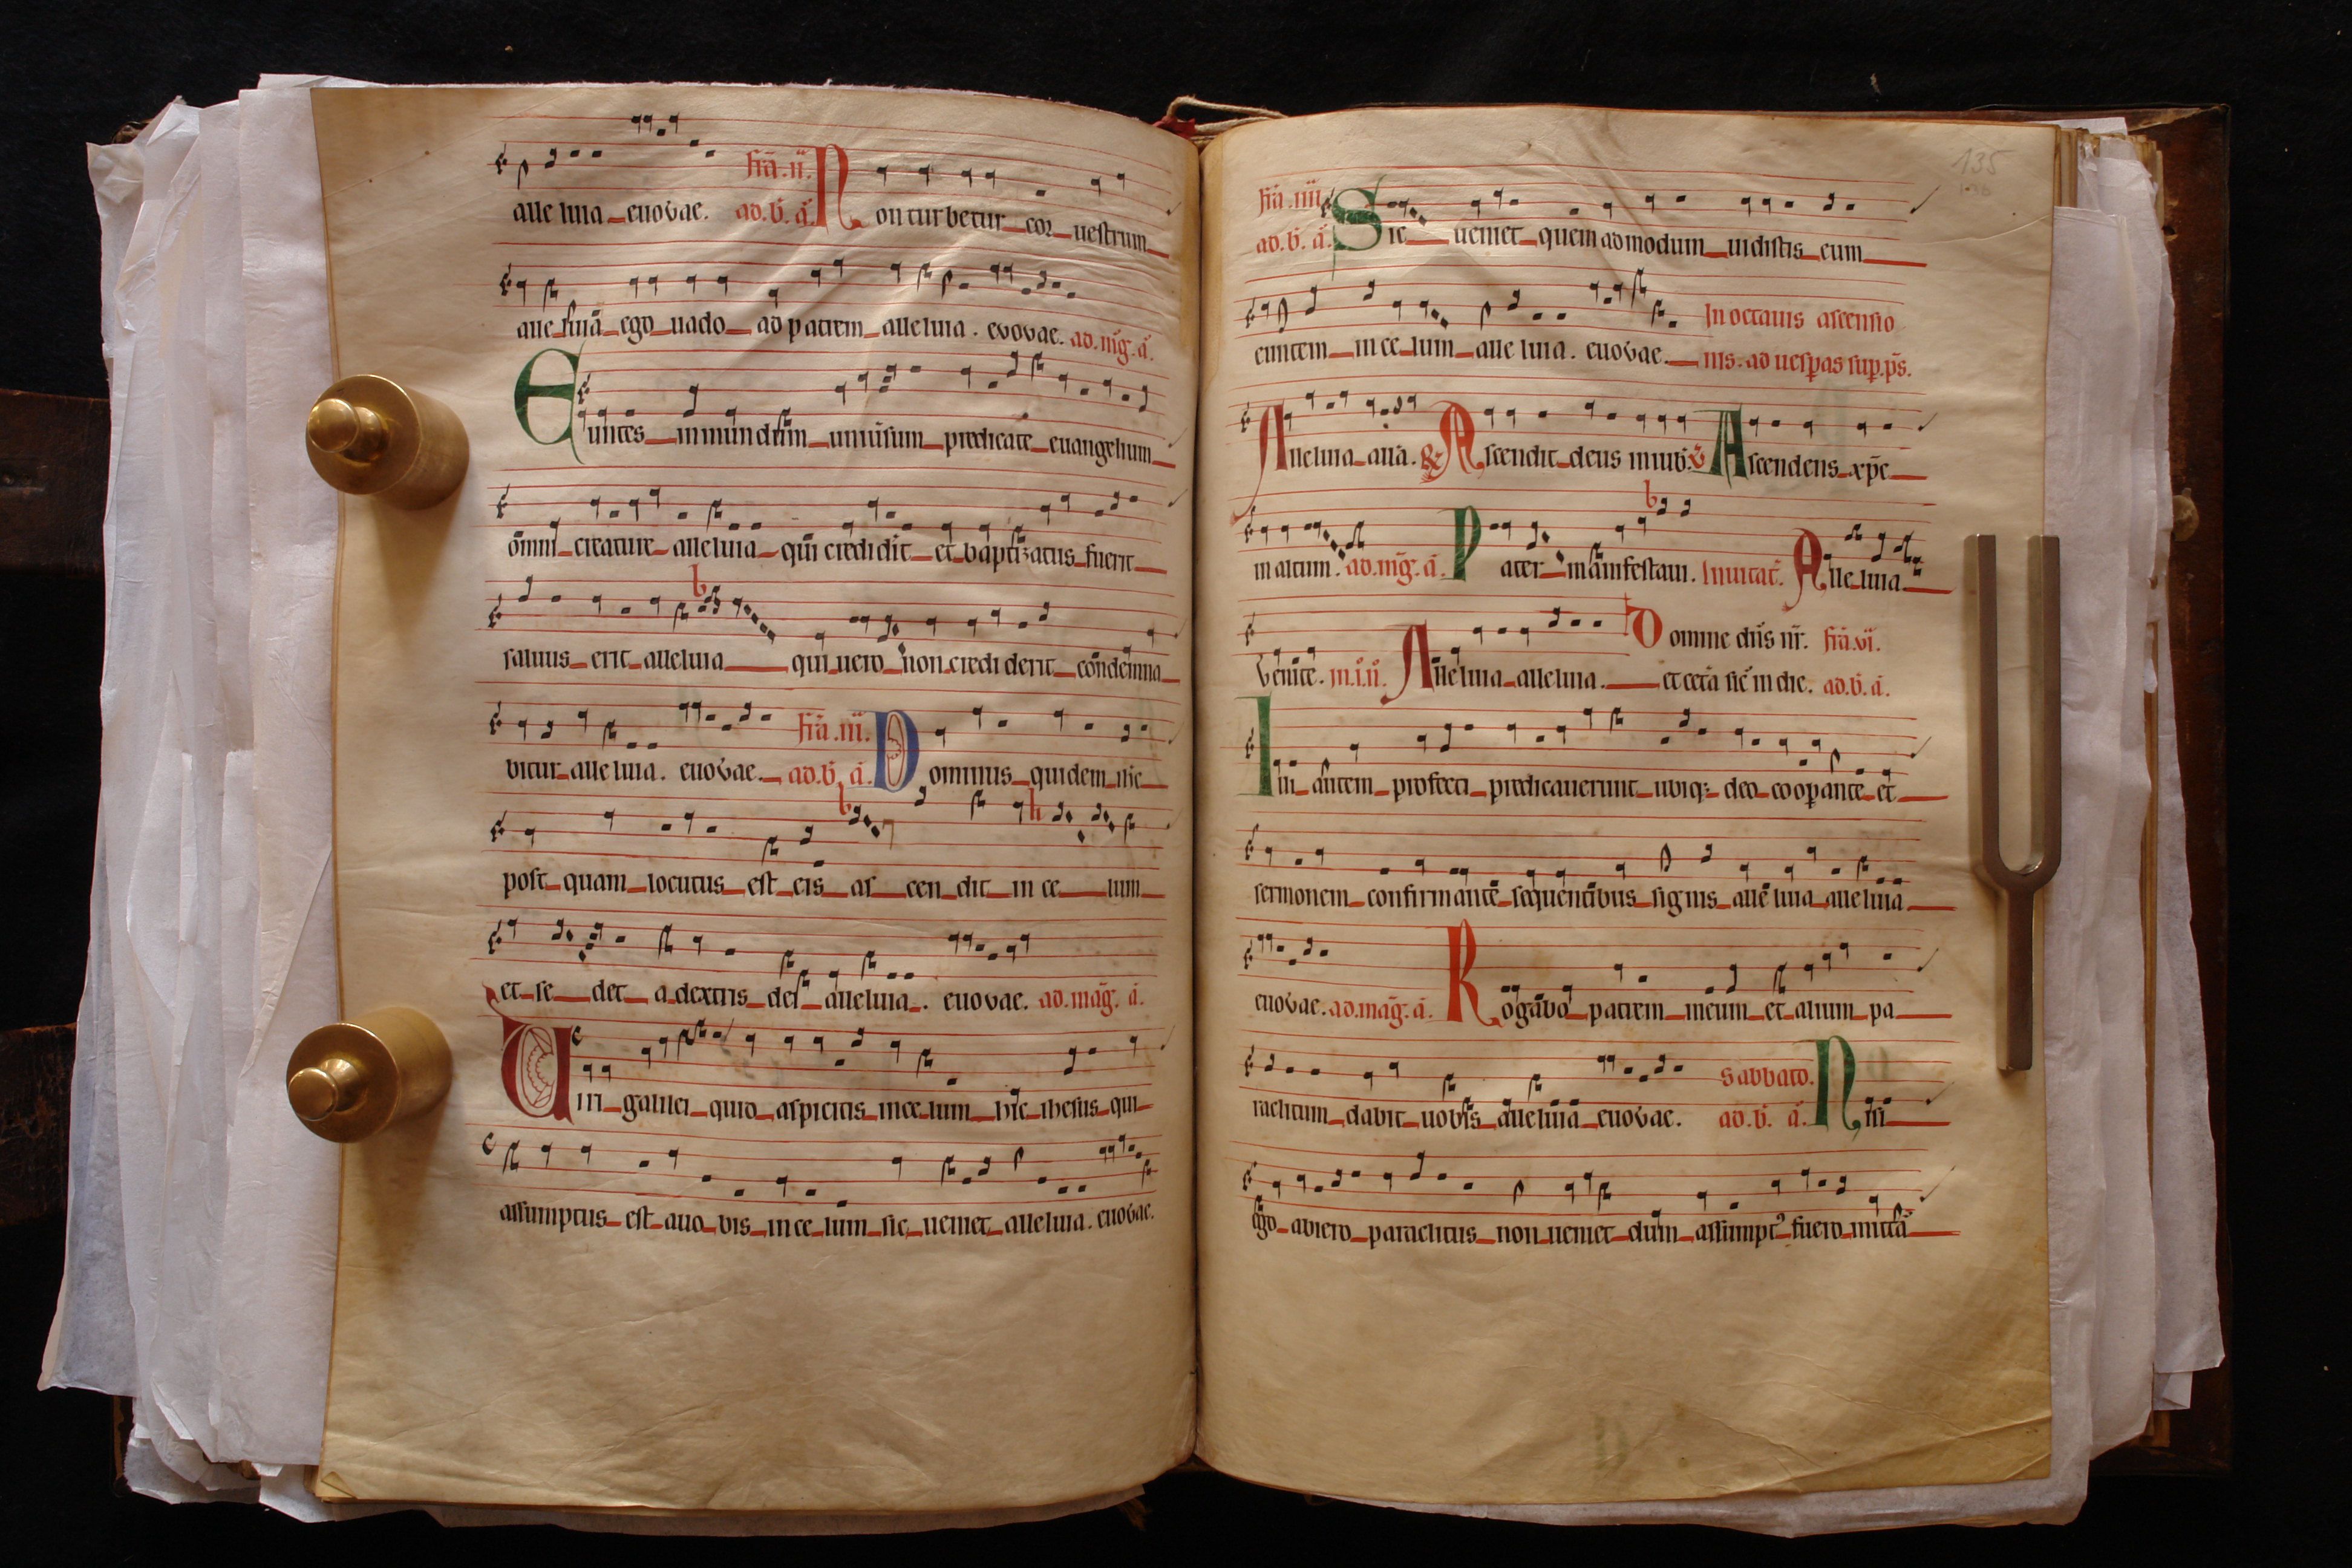 alle luia euovae. fiã.ii. ad.b̃. ã. Non turbetur cor vestrum
alle luiã ego vado ad patrem alleluia. evovae. ad.mg̃.ã.
Euntes in mundũm univ̉sum predicate euangelium
om̃ni creature alleluia qui credidit et baptizatus fuerit
saluus erit alleluia qui uero non credi derit condemna
bitur alle luia. euovae. fiã.iii. ad.b̃. ã. Dominus quidem ihc
post quam locutus est eis as cen dit in ce lum
et se det a dextris dei alleluia. euovae. ad.mag̃. ã.
Uiri galilei quid aspicitis in ce lum hic ihesus qui
assumptus est a uo bis in ce lum sic ueniet alleluia. euovae.
135
fiã.iiii. ad.b̃. ã. Sic ueniet quem admodum uidistis eum
euntem in ce lum alle luia. euovae. In octauis ascensio
nis. ad uesp̃as sup.p̃s.
Alleluia all̃a. & Ascendit deus in iub. Ascendens xp̃c
in altum. ad.mg̃. ã. Pater manifestaui. Inuitat̃. Alle luia
Venite. in.i.ñ. Alleluia alleluia. Domine dñs nr̃. fiã.vi.
et cetã sic̃ in die. ad.b̃. ã.
Illi autem profecti predicauerunt ubiq; deo coop̃ante et
sermonem confirmante sequentibus signis alle luia alle luia
euovae. ad.mag̃. ã. Rogabo patrem meum et alium pa
raclitum dabit uobis alleluia euovae. Sabbato. ad.b̃. ã. Nisi
ego abiero paraclitus non ueniet dum assumpt᾽ fuero mittã